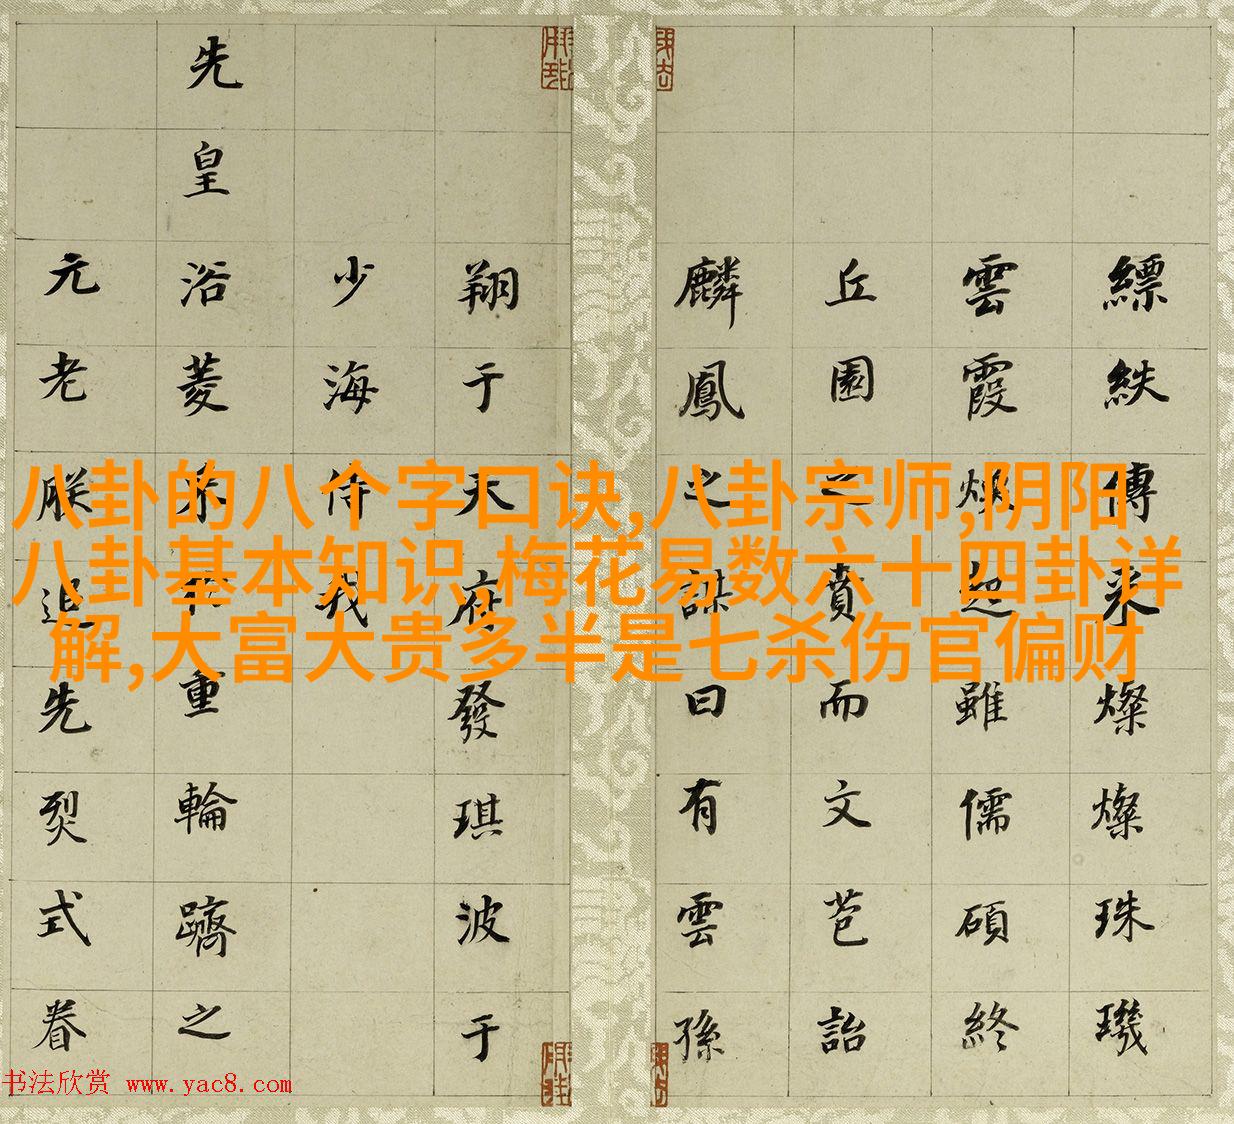 縹紩傳采燦燦珠璣
雲霞煥起雖儒碩終
丘園之賁而文芭詒
麟鳳之謀曰有雲孫
翔于天府發琪波于
少海侍我
先皇浴菱重輪躋之
元老朕追先烈式眷
八卦的八个字口诀,八卦宗师,阴阳
八卦基本知识,梅花易数六十四卦详
解,大富大贵多半是七杀伤官偏财
书法欣赏 www.yac8.com